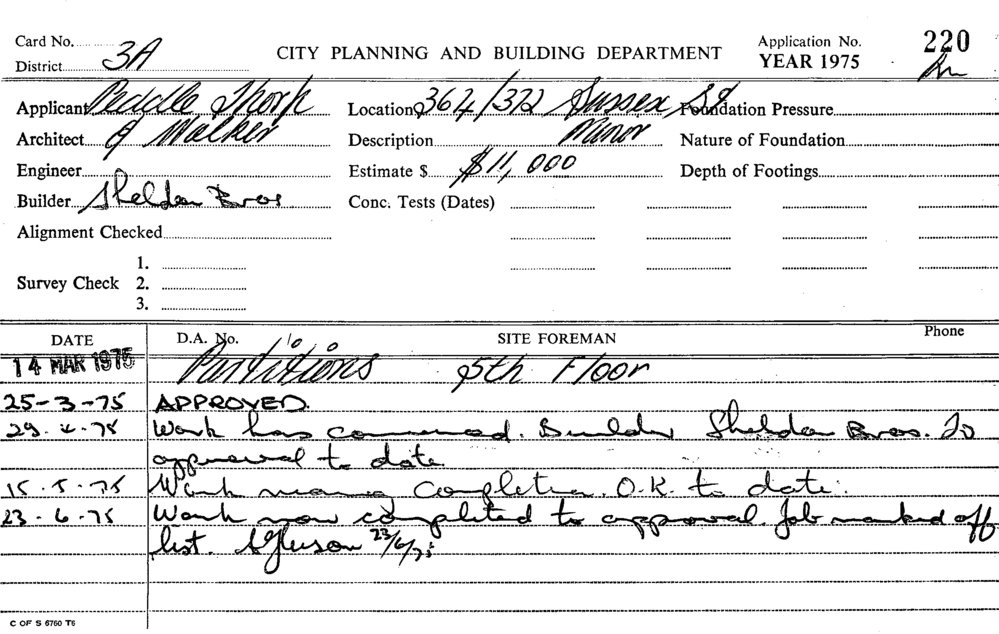 Card No. Application No. 220
District 3A CITY PLANNING AND BUILDING DEPARTMENT YEAR 1975
Applicant Peddle Thorp Location 364/372 Sussex St Foundation Pressure
Architect Walker Description Minor Nature of Foundation
Engineer Estimate $ $11,000 Depth of Footings
Builder Sheldon Bros Conc. Tests (Dates)
Alignment Checked
1.
Survey Check 2.
3.
DATE D.A. No. SITE FOREMAN Phone
14 MAR 1975 Partitions 5th Floor
25-3-75 APPROVED.
29.4.75 Work has commenced. Builder Sheldon Bros. To
approval to date
15.5.75 Work nearing Completion. O.K. to date.
23-6-75 Work now completed to approval. Job marked off
list. 23/6/75
C OF S 6760 T6